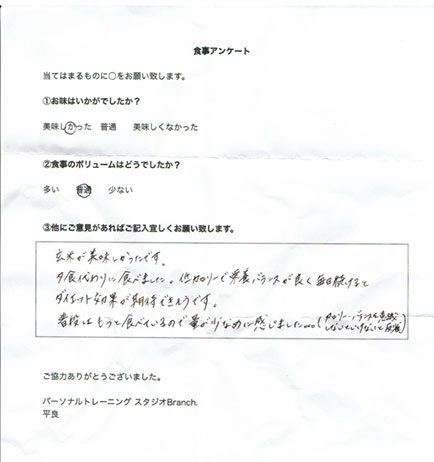 食事アンケート
当てはまるものに○をお願い致します。
①お味はいかがでしたか?
美味しかった 普通 美味しくなかった
②食事のボリュームはどうでしたか?
多い 普通 少ない
③他にご意見があればご記入宜しくお願い致します。
玄米が美味しかったです。
夕食代わりに食べました。低カロリーで栄養バランスが良く毎日続けると
ダイエット効果が期待できそうです。
普段はもっと食べているので量が少なめに感じました…(カロリー・バランスを意識
しないといけないと反省)
ご協力ありがとうございました。
パーソナルトレーニング スタジオBranch.
平良